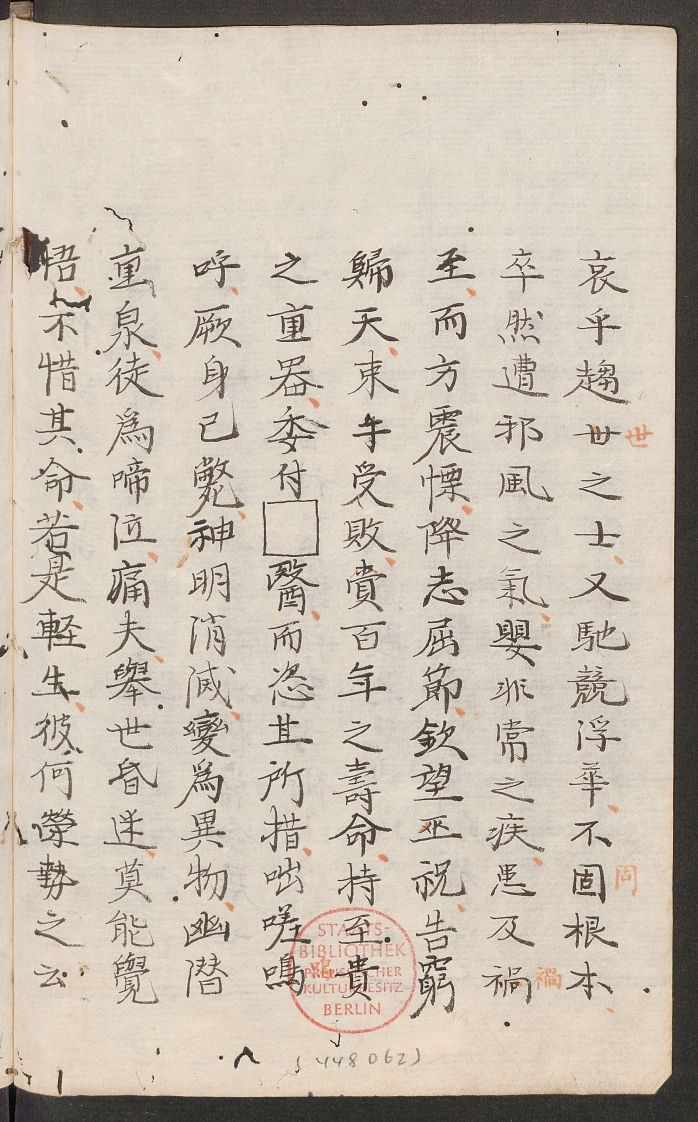 哀乎趨世之士又馳競浮華不固根本
世
固
卒然遭邪風之氣嬰非常之疾患及禍
禍
至而方震慄降志屈節欽望巫祝告窮
歸天束手受敗賫百年之壽命持至貴
之重器委付□醫而恣其所措咄嗟嗚
嗚
呼厥身已斃神明消滅變爲異物幽潛
重泉徒爲啼泣痛夫舉世昏迷莫能覺
悟不惜其命若是軽生彼何榮勢之云
STAATS-
BIBLIOTHEK
PREUSSISCHER
KULTURBESITZ
BERLIN
(448062)